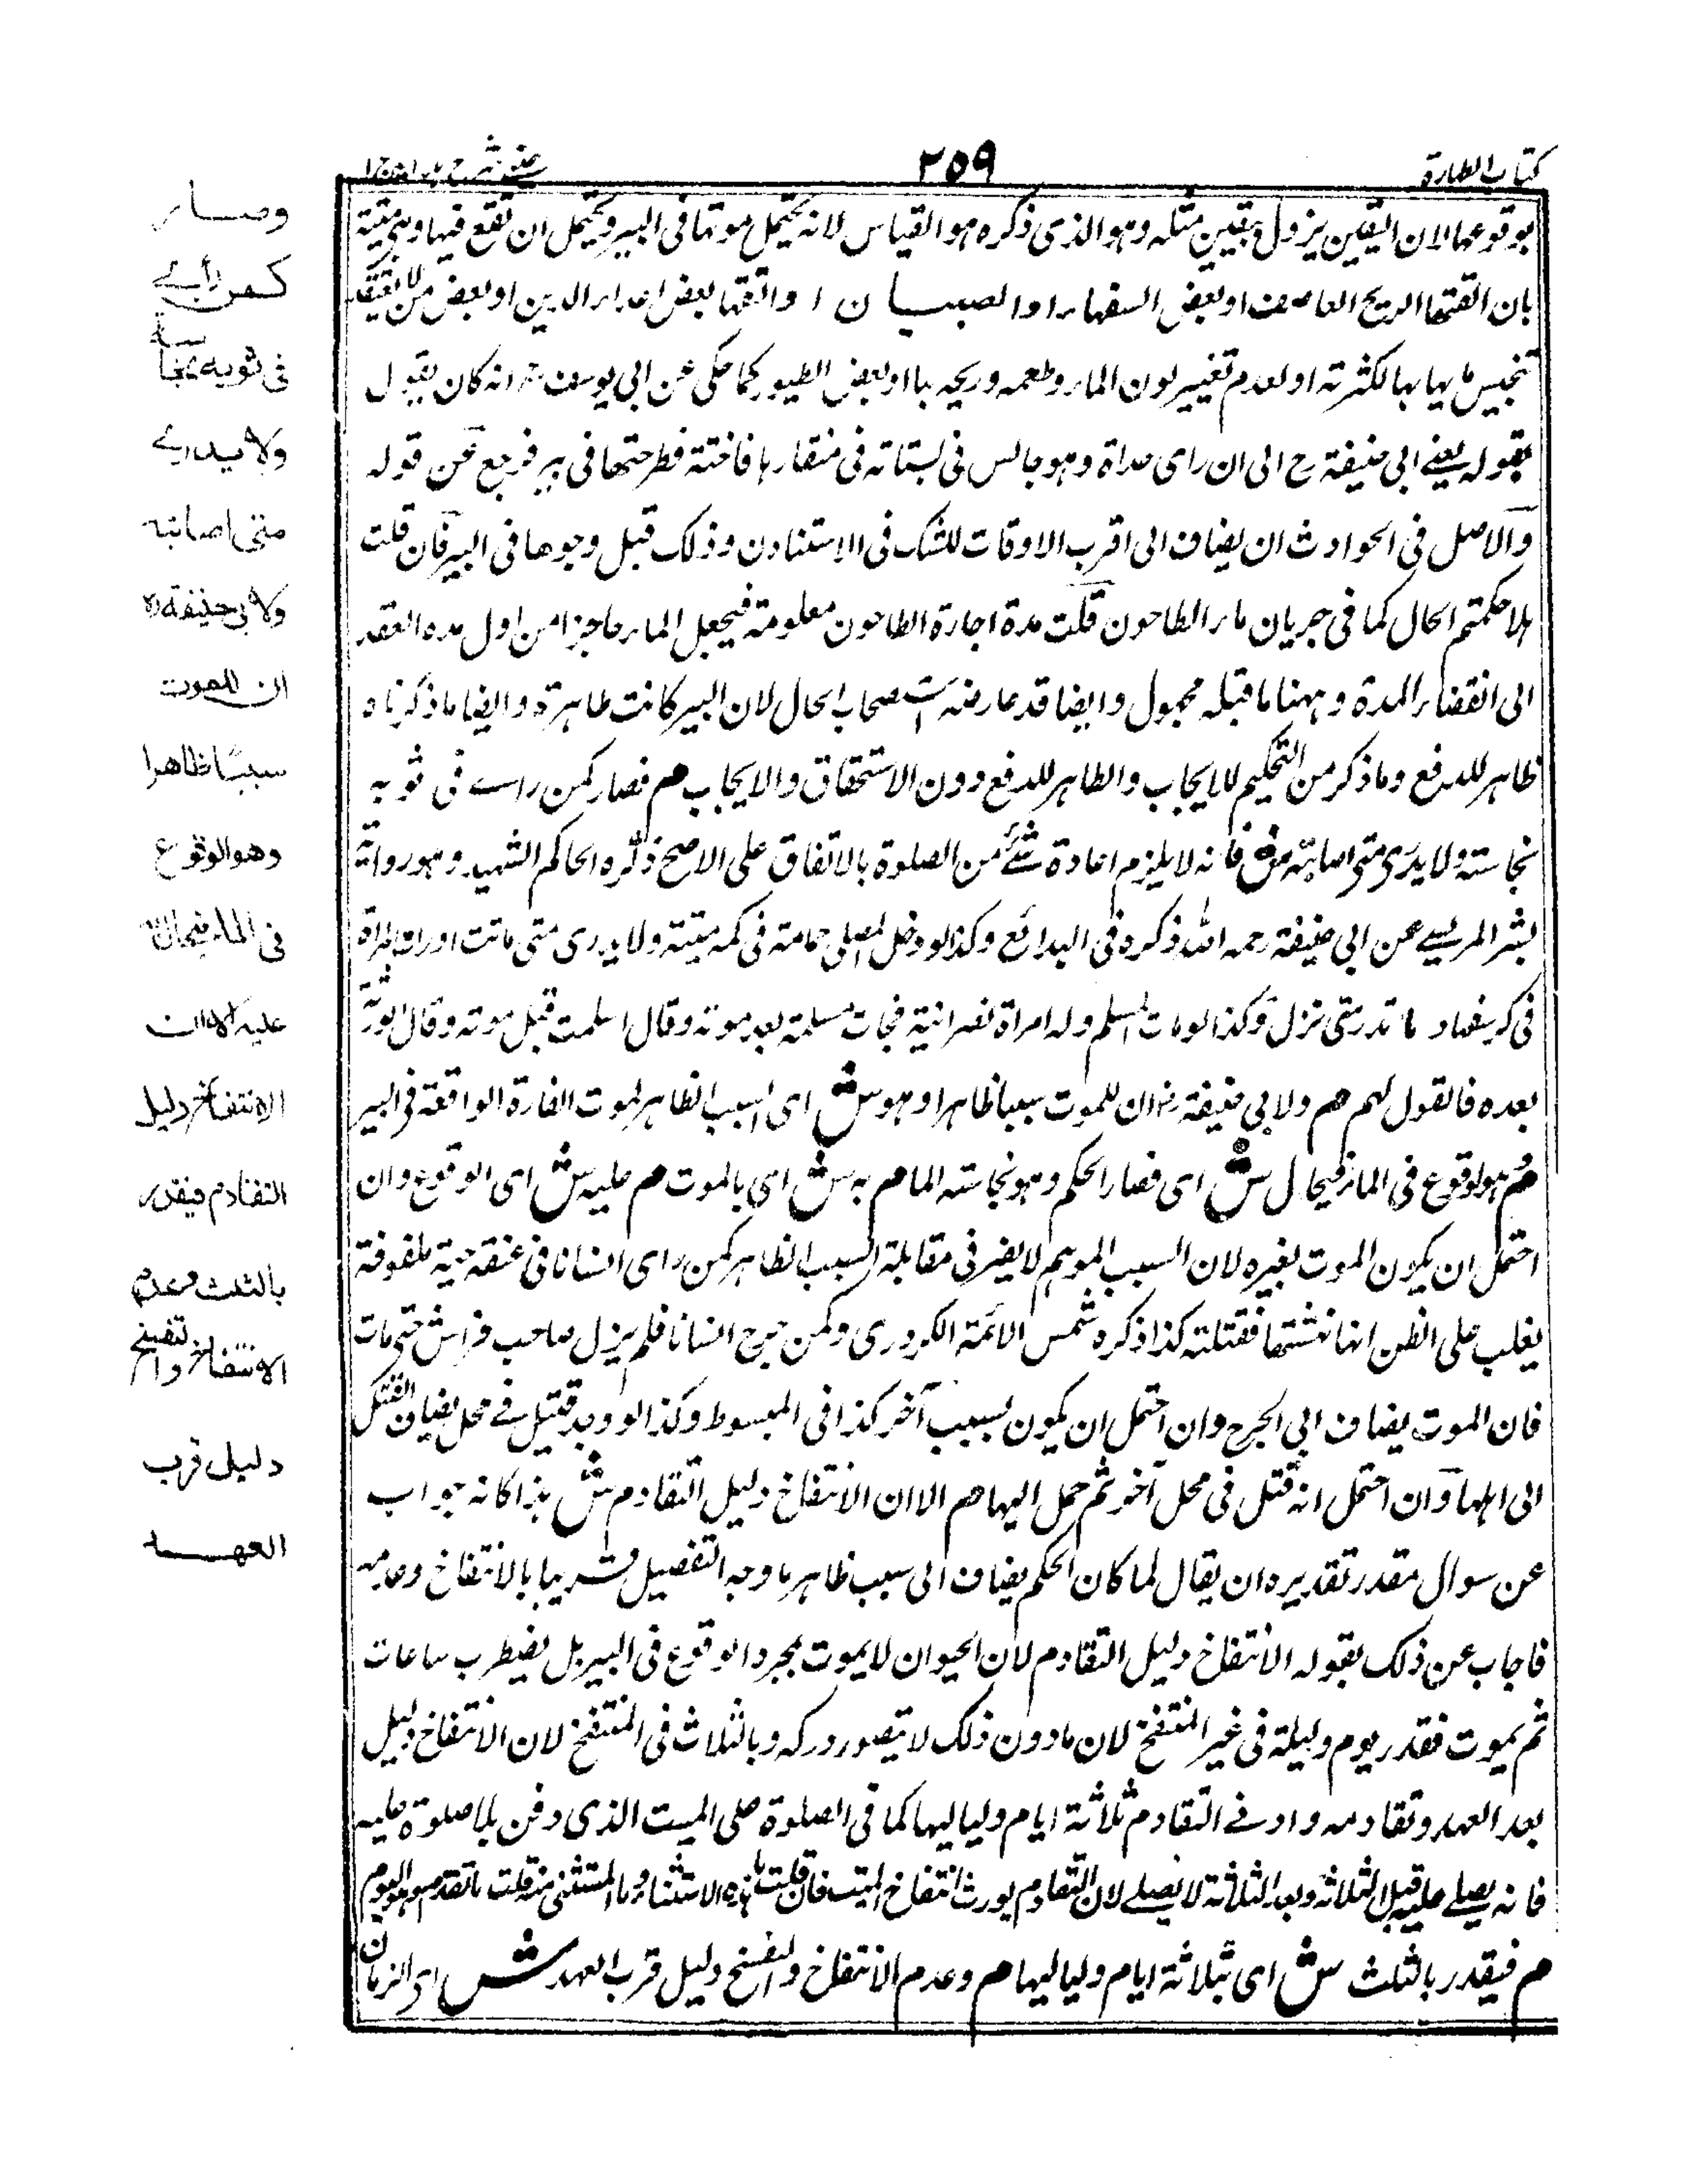 كتاب الطهارة
٢٥٩
عينى شرح هداية ج ا
بوقوعها لان اليقين يزول بيقين مثله وهو الذى ذكره هو القياس لانه يحتمل موتها فى البير ويحتمل ان تقع فيها وهى ميتة
بان القتها الريح العاصف او بعض السفهاء او الصبيان او القتها بعض اعداء الدين او بعض من لا يعتقد
تنجيس مايها بها لكثرته او لعدم تغيير لون الماء وطعمه وريحه بها او بعض الطيور كما حكى عن ابى يوسف رح انه كان يقول
بقوله يعنے ابى حنيفة رح الى ان راى حداة وهو جالس فى بستانه فى منقارها فاختة فطرحتها فى بير فرجع عن قوله
والاصل فى الحوادث ان يضاف الى اقرب الاوقات للشك فى الاستناد وذلك قبل وجودها فى البير فان قلت
هلا حكمتم الحال كما فى جريان ماء الطاحون قلت مدة اجارة الطاحون معلومة فيجعل الماء جاريا من اول مده العقد
الى انقضاء المدة وههنا ما قبله مجهول وايضا قد عارضه استصحاب الحال لان البير كانت طاهرة وايضا ما ذكرناه
ظاهر للدفع وما ذكر من التحكيم للايجاب والظاهر للدفع دون الاستحقاق والايجاب م فصار كمن راے فى ثوبه
نجاسته ولا يدرى متى اصابته ش فانه لا يلزم اعادة شئ من الصلوة بالاتفاق على الاصح ذكره الحاكم الشهيد وهو رواية
بشر المريسے عن ابى حنيفة رحمه الله ذكره فى البدائع وكذا لو دخل المصلى حمامة فى كمه ميتة ولا يدرى متى ماتت او رات المراة
فى كرسفها دما تدر متى نزل وكذا لو مات المسلم وله امراة نصرانية فجات مسلمة بعد موته وقال اسلمت قبل موته وقال الورثة
بعده فالقول لهم م ولابى حنيفة رض ان للموت سببا ظاهرا وهو ش اى السبب الظاهر لموت الفارة الواقعة فى البير
م هو الوقوع فى الماء فيحال ش اى فصار الحكم وهو نجاسته الما م به ش اى بالموت م عليه ش اى الوقوع وان
احتمل ان يكون الموت بغيره لان السبب الموهم لا يغير فى مقابلة السبب الظاهر كمن راى انسانا فى عنقه حية ملفوفة
يغلب على الظن انها نهشتها فقتلته كذا ذكره شمس الائمة الكردرى وكمن جرح انسانا فلم يزل صاحب فراش حتى مات
فان الموت يضاف الى الجرح وان احتمل ان يكون بسبب آخر كذا فى المبسوط وكذا لو وجد قتيل فے محل يضاف القتل
الى اهلها وان احتمل انه قتل فى محل آخر ثم حمل اليها م الا ان الانتفاخ دليل التقادم ش هذا كانه جواب
عن سوال مقدر تقديره ان يقال لما كان الحكم يضاف الى سبب ظاهر ما وجه التفصيل بالانتفاخ وعدمه
فاجاب عن ذلك بقوله الانتفاخ دليل التقادم لان الحيوان لا يموت بمجرد الوقوع فى البير بل يضطرب ساعات
ثم يموت فقدر بيوم وليلة فى غير المنتفخ لان ما دون ذلك لا يتصور دركه وبالثلاث فى المنتفخ لان الانتفاخ دليل
بعد العهد وتقادمه وادنے التقادم ثلاثة ايام ولياليها كما فى الصلوة على الميت الذى دفن بلا صلوة عليه
فانه يصلے عليه قبل الثلاثة وبعد الثلاثة لا يصلے لان التقادم يورث انتفاخ الميت فان قلت ما هذه الاستثناء وما المستثنى منه قلت ما تقدم وهو اليوم
م فيقدر بالثلث ش اى بثلاثة ايام ولياليها م وعدم الانتفاخ والتفسخ دليل قرب العهد ش اى الزمان
وصار
كمن رأى
فى ثوبه نجاسة
ولا يدرے
متى اصابته
ولابى حنيفة ره
ان للموت
سببًا ظاهرا
وهو الوقوع
فى الماء فيحال
عليه الا ان
الانتفاخ دليل
التقادم فيقدر
بالثلث وعدم
الانتفاخ والتفسخ
دليل قرب
العهد